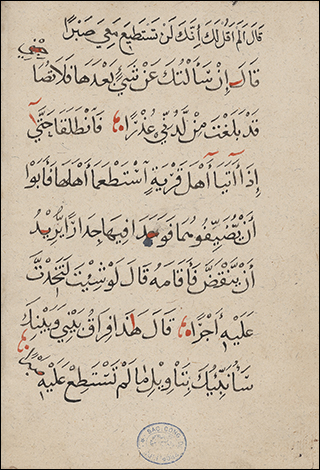 قَالَ أَلَمْ أَقُلْ لَكَ إِنَّكَ لَنْ تَسْتَطِيعَ مَعِيَ صَبْرًا
قَالَ إِنْ سَأَلْتُكَ عَنْ شَيْءٍ بَعْدَهَا فَلَا تُصَا
حِبْنِي
قَدْ بَلَغْتَ مِنْ لَدُنِّي عُذْرًا فَانْطَلَقَا حَتَّى
إِذَا أَتَيَا أَهْلَ قَرْيَةٍ اسْتَطْعَمَا أَهْلَهَا فَأَبَوْا
أَنْ يُضَيِّفُوهُمَا فَوَجَدَا فِيهَا جِدَارًا يُرِيدُ
أَنْ يَنْقَضَّ فَأَقَامَهُ قَالَ لَوْ شِئْتَ لَتَّخَذْتَ
عَلَيْهِ أَجْرًا قَالَ هَذَا فِرَاقُ بَيْنِي وَبَيْنِكَ
سَأُنَبِّئُكَ بِتَأْوِيلِ مَا لَمْ تَسْتَطِعْ عَلَيْهِ